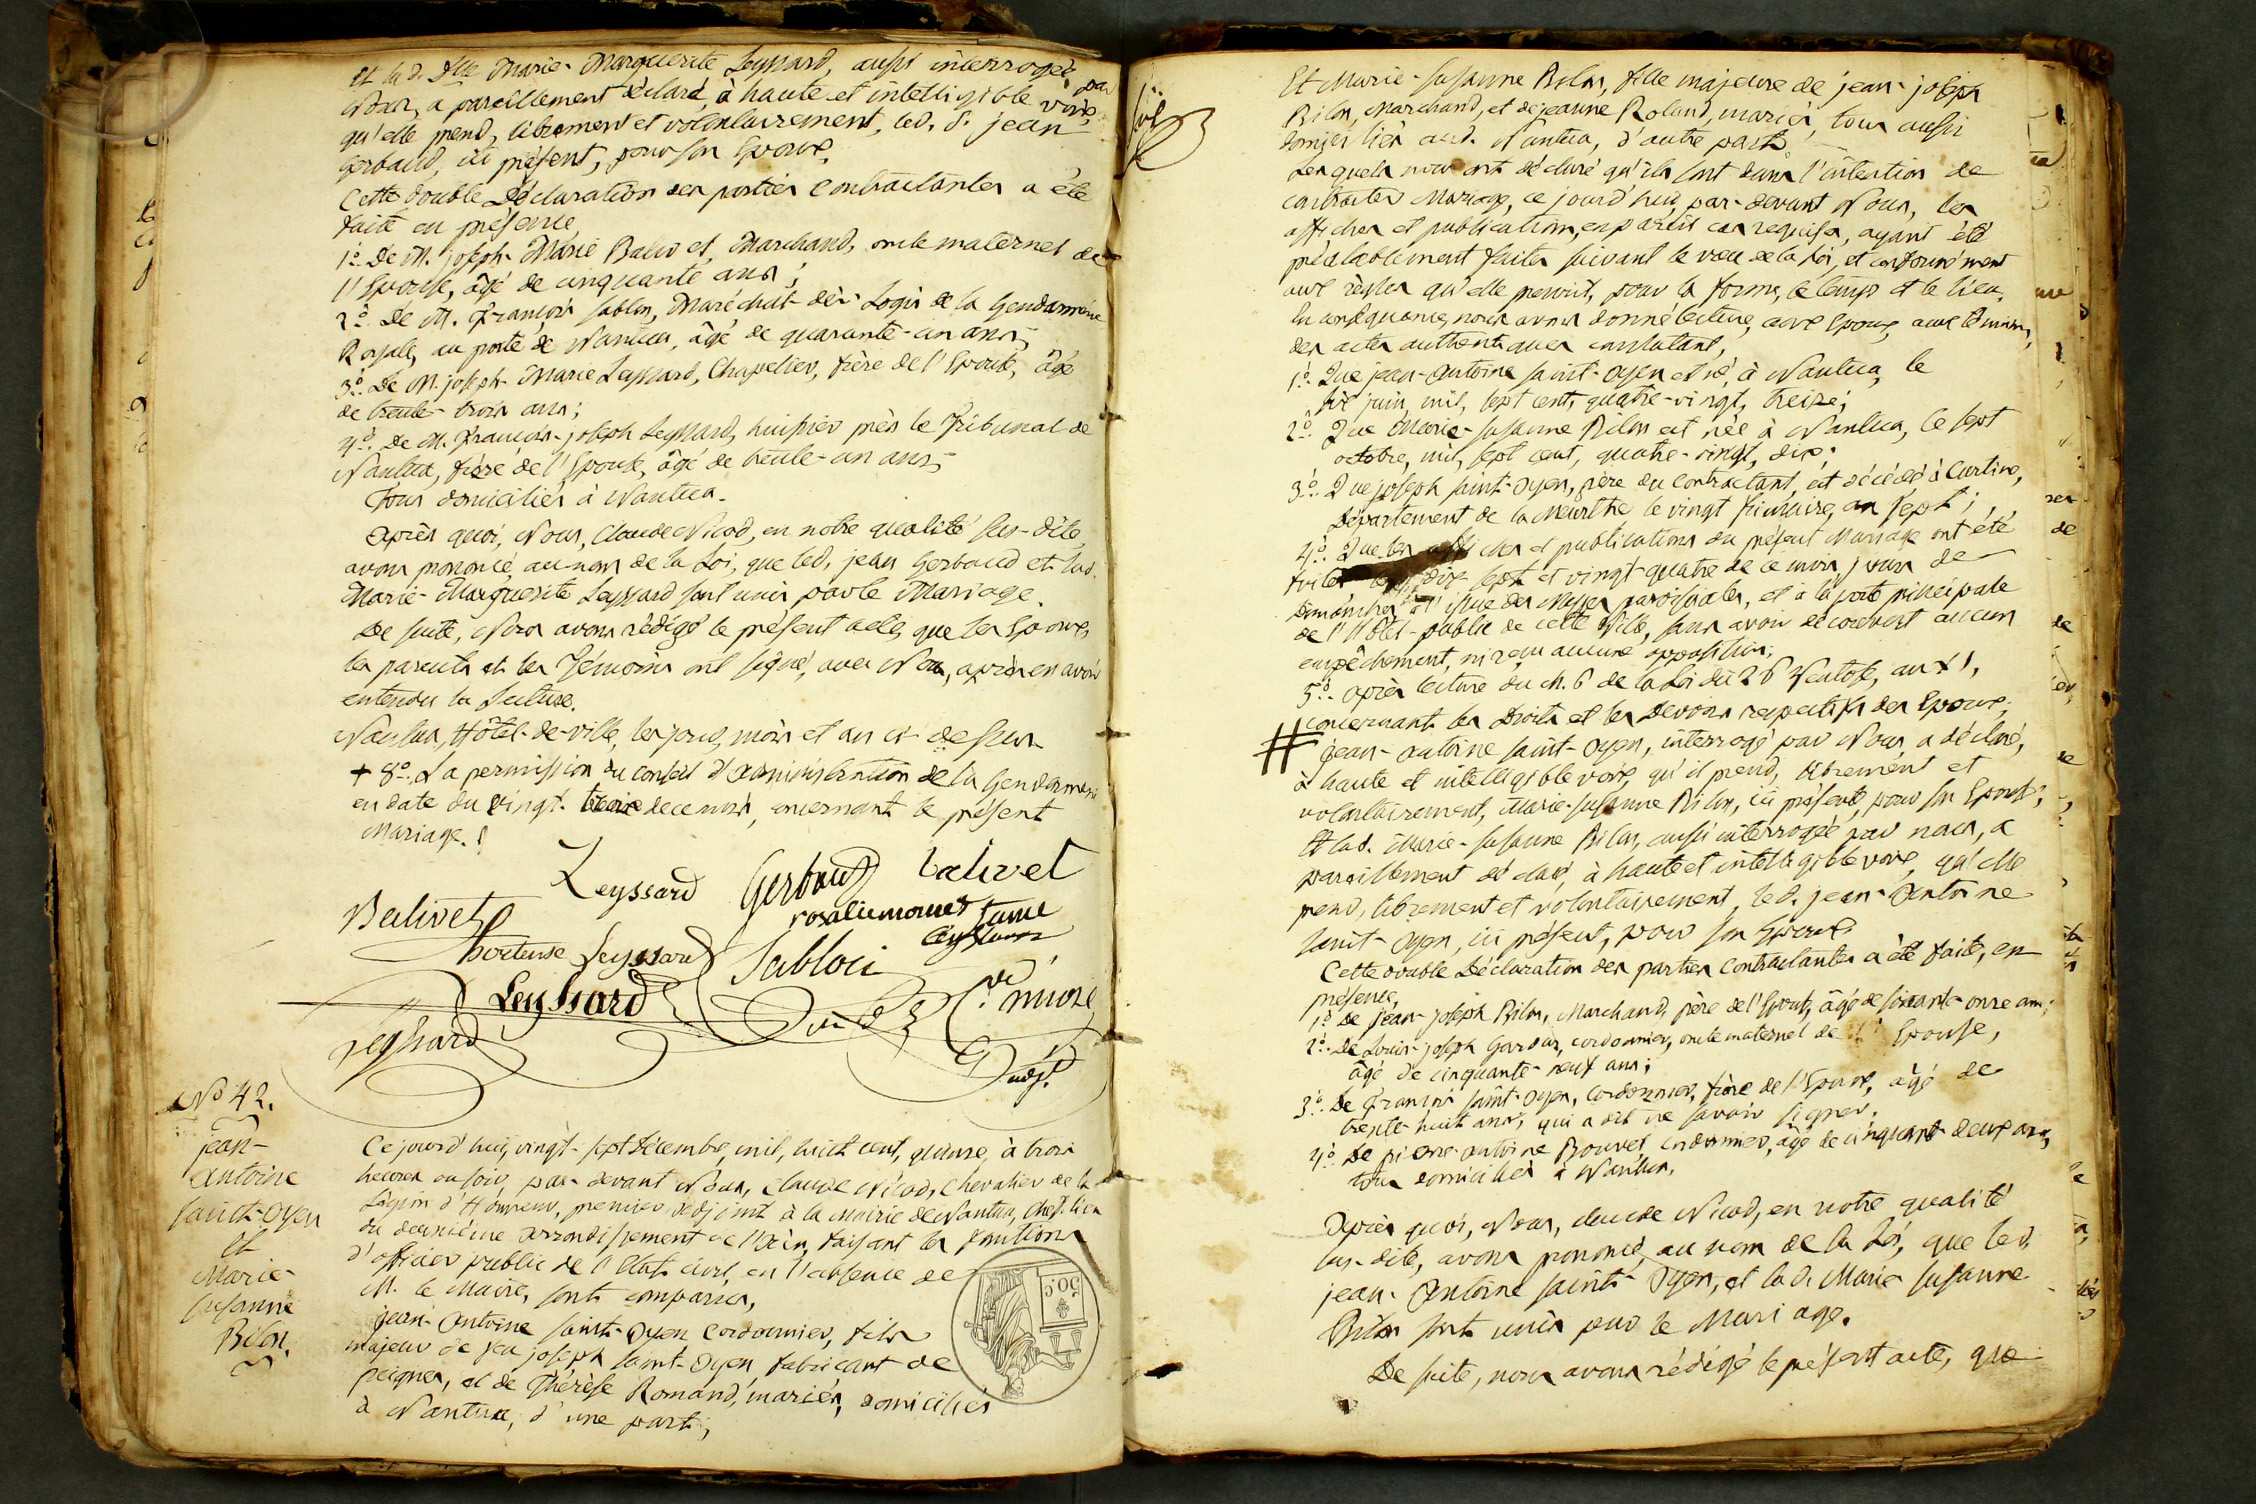 et lad. Dlle Marie-Marguerite Leyssard, aussi interrogée, par
Nous, a pareillement déclaré, à haute et intelligible voix,
qu'elle prend, librement et volontairement, led. S. jean
Gerbaud, ici présent, pour son Epoux.
Cette double Déclaration des parties contractantes a été
faite en présence
1.º De M. joseph-Marie Balivet, Marchand, oncle maternel de
l'Epouse, âgé de cinquante ans;
2.º De M. François Sablon, Maréchal-des-Logis de la Gendarmerie
Royale, au poste de Nantua, âgé de quarante-un ans;
3.º De M. joseph-Marie Leyssard, Chapelier, frère de l'Epouse, âgé
de trente-trois ans;
4.º De M. François-joseph Leyssard, huissier près le Tribunal de
Nantua, frère de l'Epouse, âgé de trente-un ans;
Tous domiciliés à Nantua.
Après quoi, Nous, Claude Nicod, en notre qualité sus-dite,
avons prononcé, au nom de la Loi, que led. jean Gerbaud et lad.
Marie-Marguerite Leyssard sont unis par le Mariage.
De suite, Nous avons rédigé le présent acte, que les Epoux,
les parents et les Témoins ont signé, avec Nous, après en avoir
entendu la Lecture.
Nantua, Hôtel-de-ville, les jour, mois et an ci-dessus
+ 8.º La permission du conseil d'administration de la Gendarmerie
en date du vingt-treize decembre, concernant le présent
Mariage.
Leyssard Gerbaud balivet
Balivet
hortense Leyssard Sablon
Leyssard
Leyssard
adj.t
No 42.
jean-
Antoine
saint-Oyen
et
Marie-
susanne
Bilon.
Ce jourd'hui, vingt-sept décembre, mil, huit cent, quinze, à trois
heures du soir, par-devant Nous, Claude Nicod, Chevalier de la
Légion d'Honneur, premier adjoint à la Mairie de Nantua, chef-lieu
du deuxième arrondissement de l'Ain, faisant les fonctions
d'officier public de l'Etat civil, en l'absence de
M. le Maire, sont comparus,
jean-Antoine saint-Oyen Cordonnier, fils
majeur de feu joseph saint-Oyen fabricant de
peignes, et de Thérèse Romand, mariés, domiciliés
à Nantua, d'une part;
50 c
Et Marie-susanne Bilon, fille majeure de jean-joseph
Bilon, Marchand, et de jeanne Roland, mariés, tous aussi
domiciliés aud. Nantua, d'autre part;
Lesquels nous ont déclaré qu'ils sont dans l'intention de
contracter Mariage, ce jourd'hui, par-devant Nous, les
affiches et publications, en pareil cas requises, ayant été
préalablement faites suivant le vœu de la Loi, et conformément
aux règles qu'elle prescrit, pour la forme, le temps et le lieu.
En conséquence, nous avons donné lecture, aux Epoux, aux témoins,
des actes authentiques constatant,
1.º Que jean-Antoine saint-Oyen est né, à Nantua, le
six juin, mil, sept cent, quatre-vingt, treize;
2.º Que Marie-susanne Bilon est née à Nantua, le sept
octobre, mil, sept cent, quatre-vingt, dix;
3.º Que joseph saint-Oyen, père du contractant, est décédé à
Département de la Meurthe le vingt frimaire, an sept;
4.º Que les affiches et publications du présent Mariage ont été
faites dix-sept et vingt-quatre de ce mois, jours de
Dimanches à l'issue des Messes paroissiales, et à la porte principale
de l'Hôtel-public de cette Ville, sans avoir découvert aucun
empêchement, ni reçu aucune opposition;
5.º Après lecture du ch. 6 de la Loi du 26 Ventose, an XI,
concernant les Droits et les Devoirs respectifs des Epoux;
jean-antoine saint-Oyen, interrogé par Nous, a déclaré,
à haute et intelligible voix, qu'il prend, librement et
volontairement, Marie-susanne Bilon, ici présente, pour son Epouse;
Et lad. Marie-susanne Bilon, aussi interrogée par nous, a
pareillement déclaré, à haute et intelligible voix, qu'elle
prend, librement et volontairement, led. jean-Antoine
saint-Oyen, ici présent, pour son Epoux.
Cette double Déclaration des parties contractantes a été faite, en
présence,
1.º De jean-joseph Bilon, Marchand, père de l'Epouse, âgé de soixante-onze ans;
2.º De Louis-joseph cordonnier, oncle maternel de l'Epouse,
âgé de cinquante-neuf ans;
3.º De François saint-Oyen, Cordonnier, frère de l'Epoux, âgé de
trente-huit ans, qui a dit ne savoir signer.
4.º De pierre-antoine Bouvet, cordonnier, âgé de cinquante-deux ans,
tous domiciliés à Nantua.
Après quoi, Nous, claude Nicod, en notre qualité
sus-dite, avons prononcé, au nom de la Loi, que led.
jean-Antoine saint-Oyen, et lad. Marie-susanne
Bilon sont unis par le Mariage.
De suite, nous avons rédigé le présent acte, que